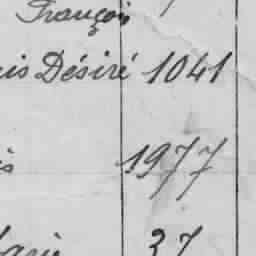 François
is Désiré 1041
is 1977
37